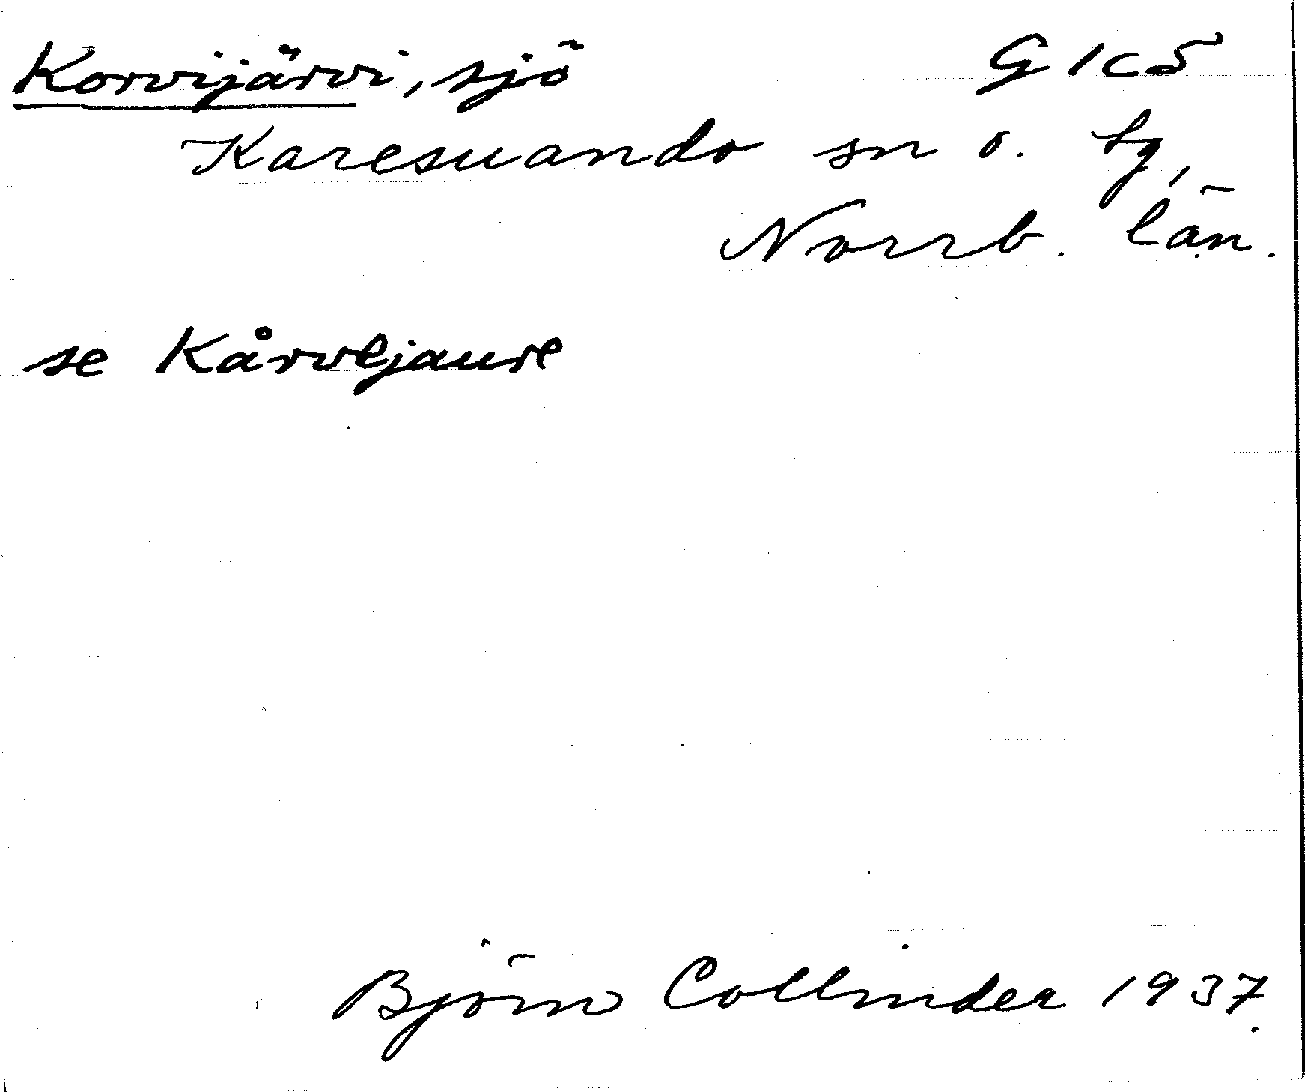 Korvijärvi, sjö G 1c5
Karesuando sn o. tg,
Norrb. län.
se Kårvejaure
Björn Collinder 1937.